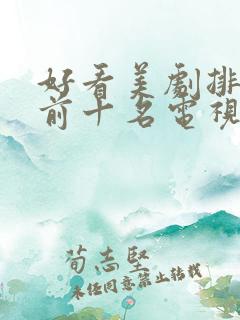 好看美劇排
前十名電視
荀志堅
未经同意禁止转载